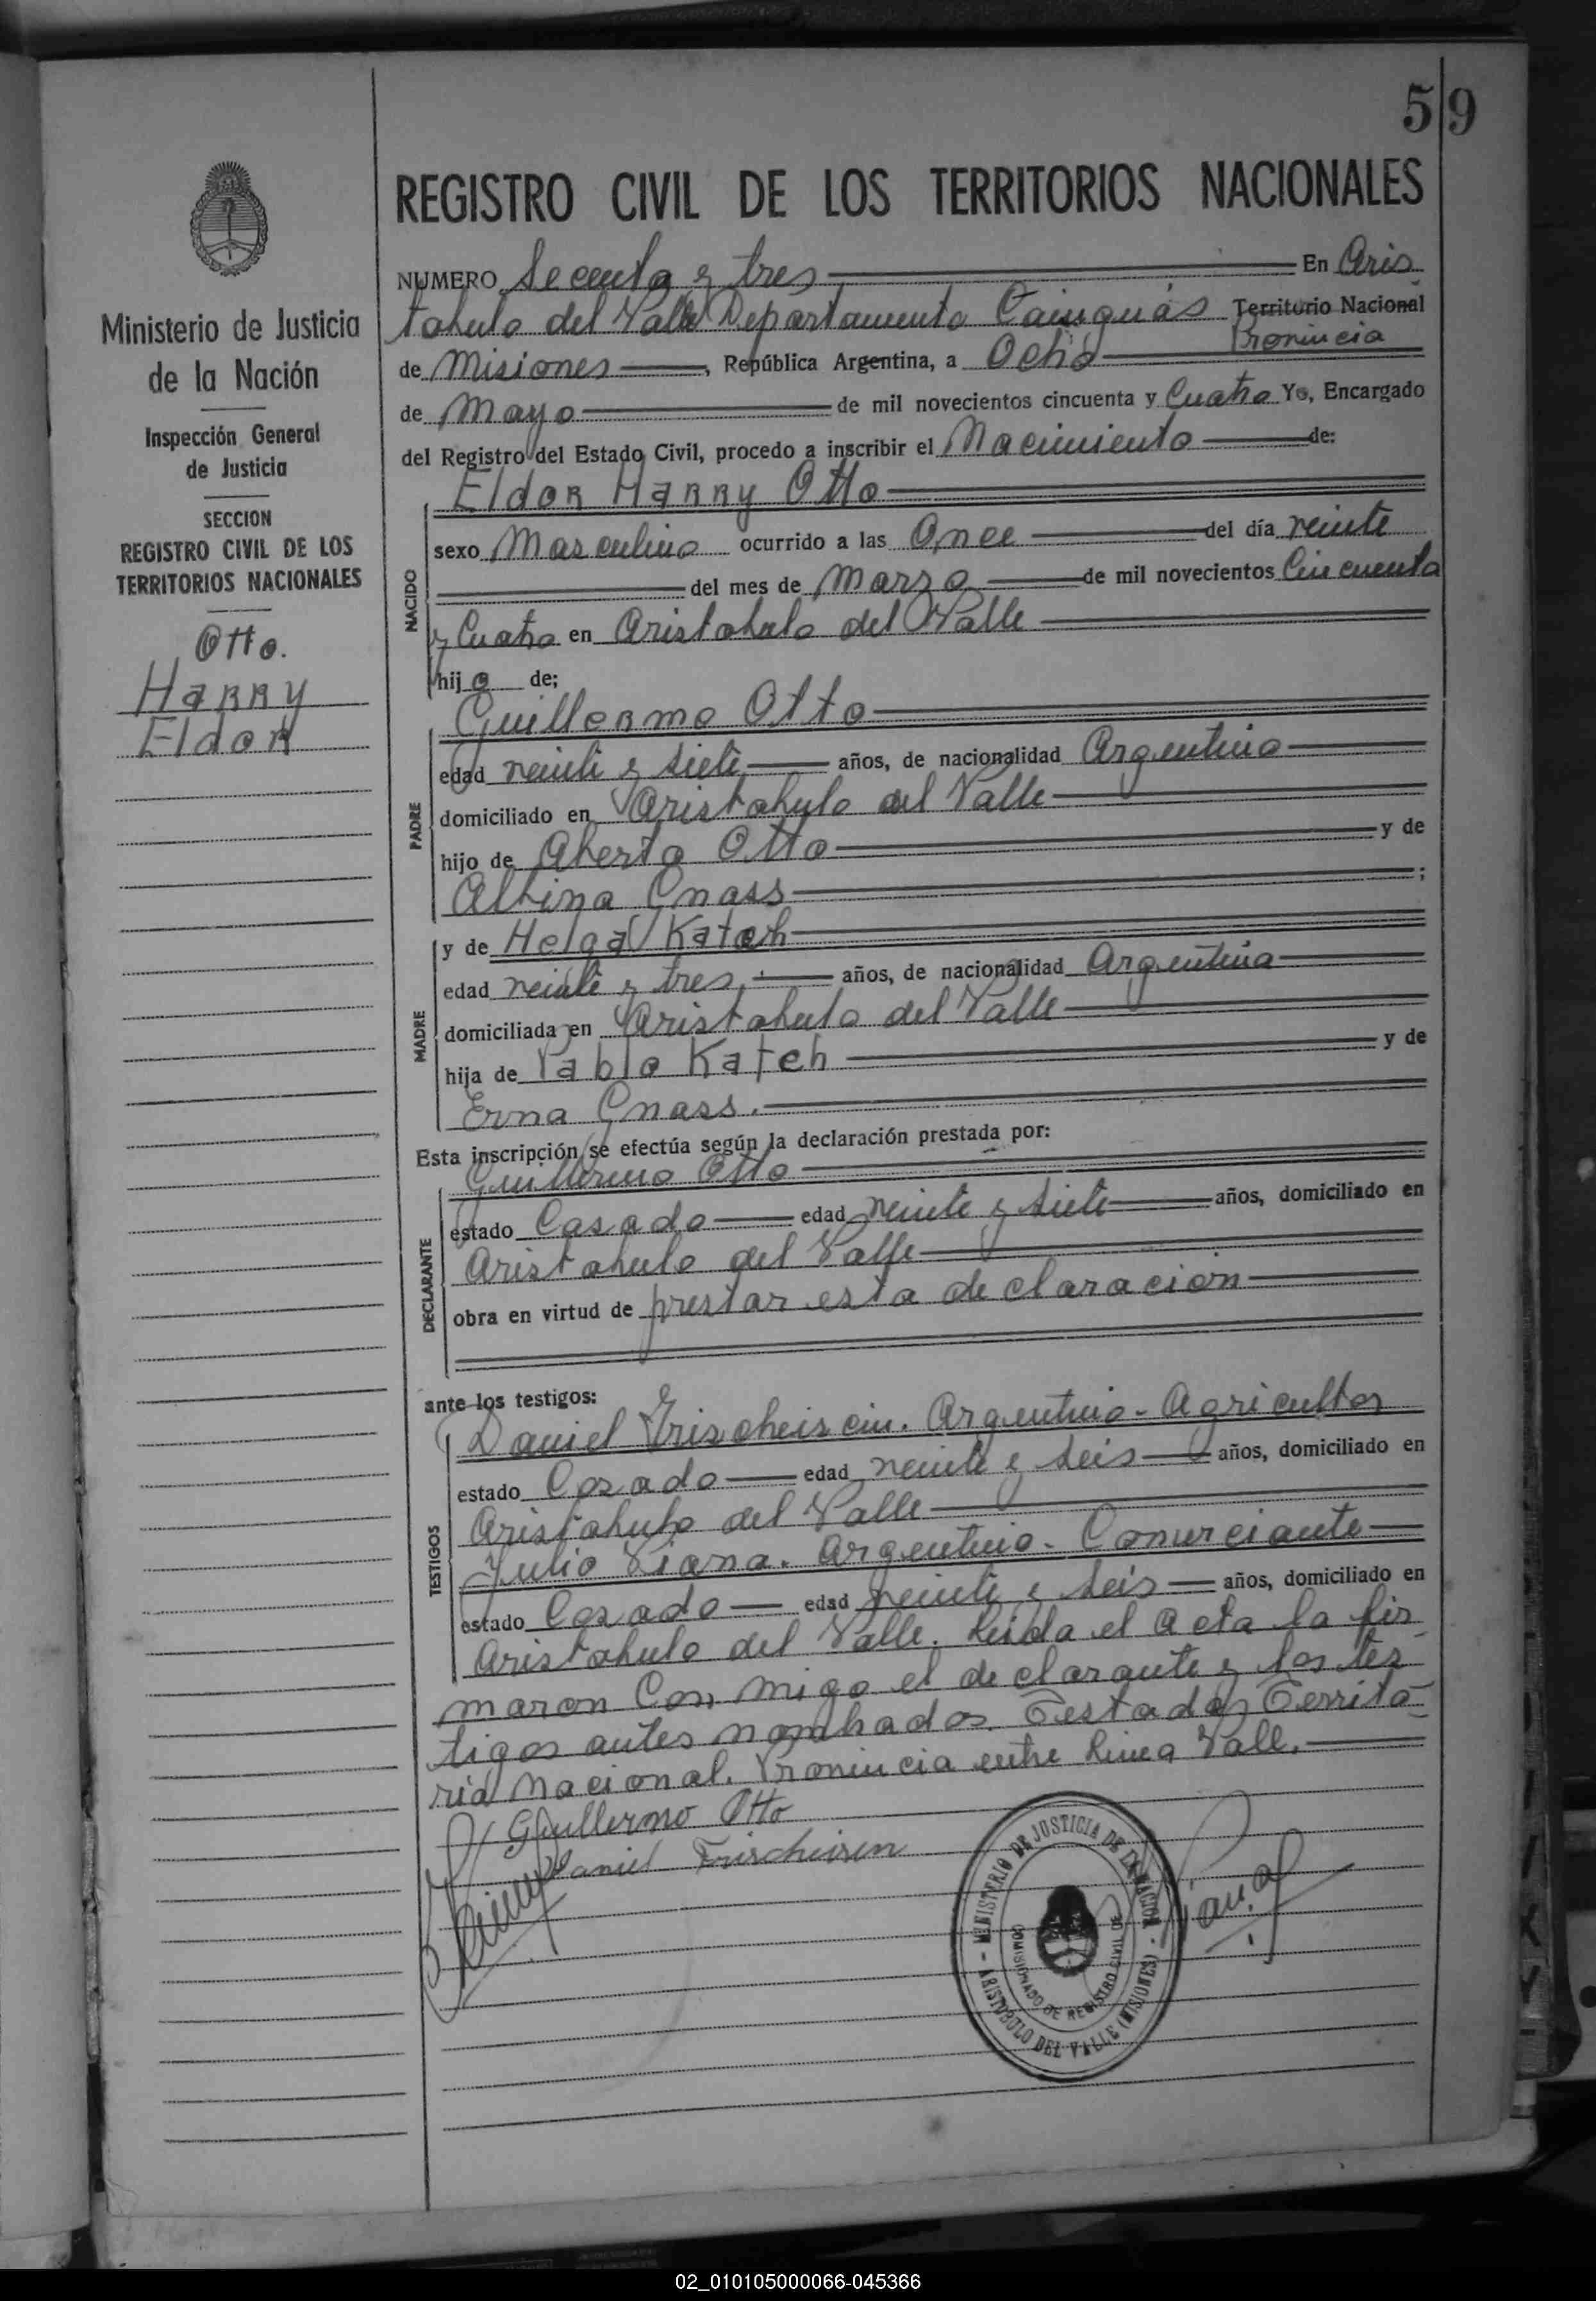 59
REGISTRO CIVIL DE LOS TERRITORIOS NACIONALES
Ministerio de Justicia
de la Nación
Inspección General
de Justicia
SECCION
REGISTRO CIVIL DE LOS
TERRITORIOS NACIONALES
Otto.
Harry
Eldor
NUMERO y tres En Aris
tobulo del Valle Departamento Cainguás Territorio Nacional
Provincia
de Misiones, República Argentina, a Ocho
de Mayo de mil novecientos cincuenta y Cuatro Yo, Encargado
del Registro del Estado Civil, procedo a inscribir el Nacimiento de:
Eldor Harry Otto
NACIDO
sexo Masculino ocurrido a las Once del día veinte
del mes de Marzo de mil novecientos Cincuenta
y Cuatro en Aristobulo del Valle
hijo de;
Guillermo Otto
PADRE
edad veinte y siete años, de nacionalidad Argentino
domiciliado en Aristobulo del Valle
hijo de Alberto Otto y de
Albina Gnass;
y de Helga Katch
MADRE
edad veinte y tres años, de nacionalidad Argentina
domiciliada en Aristobulo del Valle
hija de Pablo Katch y de
Erna Gnass.
Esta inscripción se efectúa según la declaración prestada por:
Guillermo Otto
DECLARANTE
estado Casado edad veinte y siete años, domiciliado en
Aristobulo del Valle
obra en virtud de prestar esta declaracion
ante los testigos:
Daniel Argentino - Agricultor
TESTIGOS
estado Casado edad veinte y seis años, domiciliado en
Aristobulo del Valle
Julio Viana. Argentino - Comerciante
estado Casado edad veinte y seis años, domiciliado en
Aristobulo del Valle. Leida el Acta la fir
maron Con migo el declarante y los tes
tigos antes nombrados. Testado Territo
rio Nacional. Provincia entre linea Vall.
Guillermo Otto
Daniel Frischeisen
MINISTERIO DE JUSTICIA DE LA NACION
COMISIONADO DE REGISTRO CIVIL
ARISTOBULO DEL VALLE (MISIONES)
02_010105000066-045366